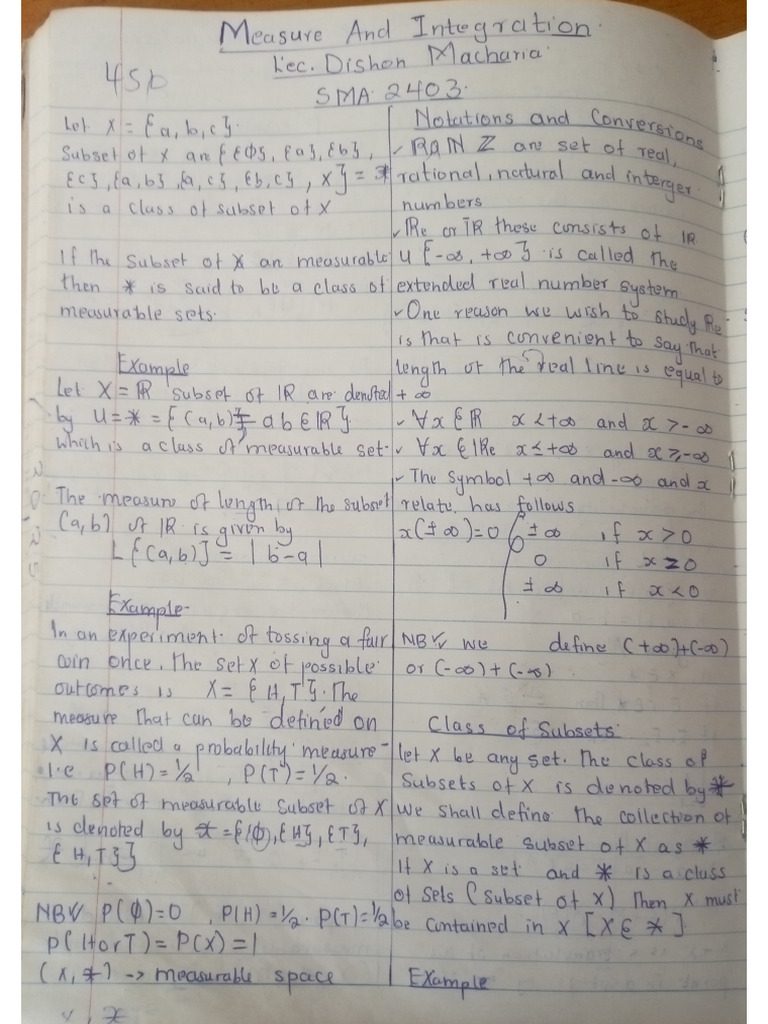 Measure And Integration.
Lec. Dishon Macharia.
45b
SMA 2403.
Let X = {a, b, c}.
Subset of X are {{Φ}, {a}, {b},
{c}, {a,b}, {a,c}, {b,c}, X} = *
is a class of subset of X
If the subset of X an measurable
then * is said to be a class of
measurable sets.
Example
Let X = ℝ subset of ℝ are denoted
by U = * = {(a,b) ab ∈ ℝ}
which is a class of measurable set.
The measure of length of the subset
(a,b) of ℝ is given by
L{(a,b)} = |b-a|
Example
In an experiment of tossing a fair
coin once, The set X of possible
outcomes is X = {H,T}. The
measure that can be defined on
X is called a probability measure
i.e P(H)=½, P(T)=½.
The set of measurable subset of X
is denoted by * = {{Φ}, {H}, {T},
{H,T}}
NB✓ P(Φ)=0, P(H)=½. P(T)=½
P(H or T) = P(X) = 1
(X, *) -> measurable space
Notations and Conversions
✓ R Q N Z are set of real,
rational, natural and interger
numbers
✓ Re or ℝ these consists of ℝ
U {-∞, +∞} is called the
extended real number system
✓ One reason we wish to study Re
is that is convenient to say that
length of the real line is equal to
+∞
✓ ∀x ∈ ℝ x < +∞ and x > -∞
✓ ∀x ∈ ℝe x ≤ +∞ and x ≥ -∞
✓ The symbol +∞ and -∞ and x
relate has follows
x(±∞) = 0 { ±∞ if x > 0
0 if x = 0
± ∞ if x < 0
NB✓ we define (+∞)+(-∞)
or (-∞)+(-∞)
Class of Subsets.
Let X be any set. The class of
Subsets of X is denoted by *
We shall define the collection of
measurable subset of X as *
If X is a set and * is a class
of sets (subset of X) Then X must
be contained in X [X ∈ *]
Example